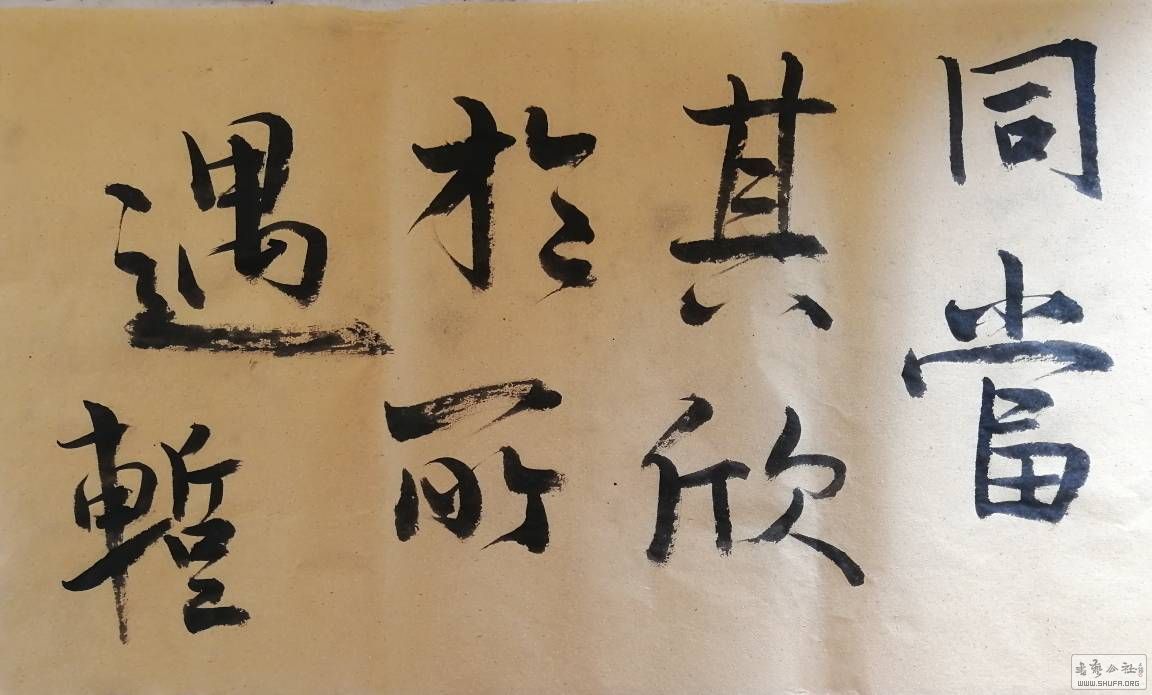 同當
其欣
於所
遇暫
書藝公社
WWW.SHUFA.ORG